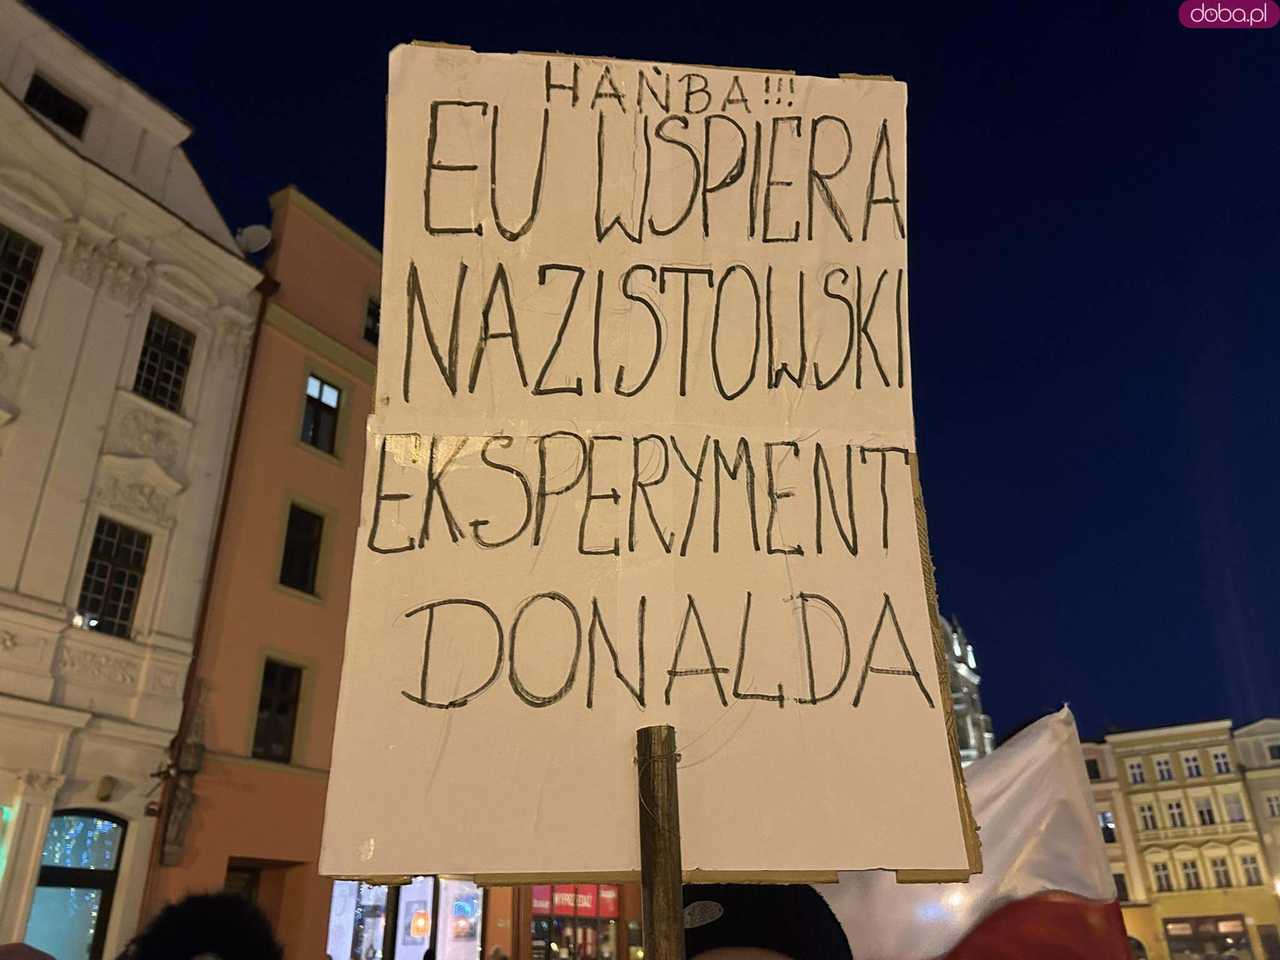 doba.pl
HAŃBA!!!
EU WSPIERA
NAZISTOWSKI
EKSPERYMENT
DONALDA
WYPRZEDAŻ